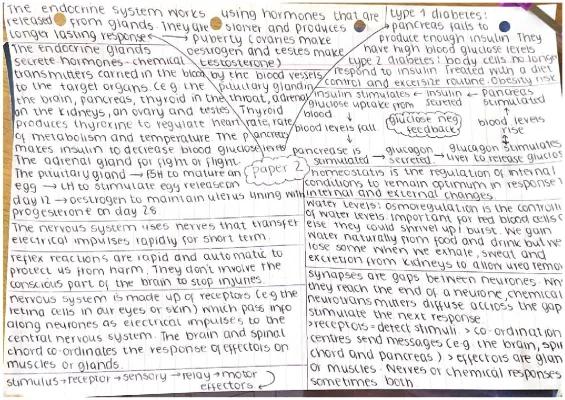 The endocrine system works using hormones that are
released from glands. They are slower and produces
longer lasting response → puberty (ovaries make
oestrogen and testes make
testosterone)
The endocrine glands
secrete hormones - chemical
transmitters carried in the blood by the blood vessels
to the target organs. (e.g the pituitary gland in
the brain, pancreas, thyroid in the throat, adrenal
on the kidneys, an ovary and testes. Thyroid
produces thyroxine to regulate heart rate, rate
of metabolism and temperature. The pancreas
makes insulin to decrease blood glucose levels
The adrenal gland for fight or flight.
The pituitary gland → FSH to mature an
egg → LH to stimulate egg release on
day 12 → oestrogen to maintain uterus lining with
progesterone on day 28
The nervous system uses nerves that transfer
electrical impulses rapidly for short term.
reflex reactions are rapid and automatic to
protect us from harm. They don't involve the
conscious part of the brain to stop injuries.
nervous system is made up of receptors (e.g the
retina cells in our eyes or skin) which pass info
along neurones as electrical impulses to the
central nervous system. The brain and spinal
chord co-ordinates the response of effectors or
muscles or glands.
stimulus → receptor → sensory → relay → motor
effectors
paper 2
type 1 diabetes:
pancreas fails to
produce enough insulin. They
have high blood glucose levels
type 2 diabetes: body cells no longer
respond to insulin. Treated with a diet
control and excersize routine. Obesity risk
insulin stimulates ← insulin ← pancreas
glucose uptake from secreted stimulated
blood
blood levels fall
glucose neg
feedback
blood levels
rise
pancreas is → glucagon → glucagon stimulates
stimulated secreted liver to release glucose
homeostatis is the regulation of internal
conditions to remain optimum in response
internal and external changes.
water levels: osmoregulation is the control
of water levels. Important for red blood cells
else they could shrivel up / burst. We gain
water naturally from food and drink but we
lose some when we exhale, sweat and
excretion from kidneys to allow urea
synapses are gaps between neurones.
they reach the end of a neurone, chemical
neurotransmitters diffuse across the gap
stimulate the next response
> receptors = detect stimuli > co-ordination
centres send messages (e.g the brain,
chord and pancreas) > effectors are
or muscles. Nerves or chemical responses
sometimes both